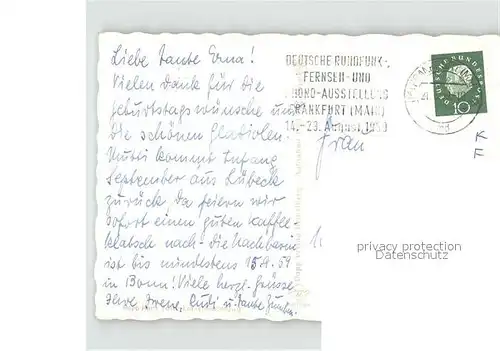 Liebe Tante Erna!
Vielen Dank für die
Geburtstagswünsche und
die schönen Gladiolen.
Mutti kommt Anfang
September aus Lübeck
zurück, da feiern wir
sofort einen guten Kaffee-
klatsch nach - die Nachbarin
ist bis mindestens 15.9.59
in Bonn! Viele herzl. Grüsse
Irene, Rudi u. Tante
DEUTSCHE RUNDFUNK-,
FERNSEH- UND
PHONO-AUSSTELLUNG
FRANKFURT (MAIN)
14.-23. August 1959
DEUTSCHE BUNDESPOST
10
Frau
K
F
privacy protection
Datenschutz